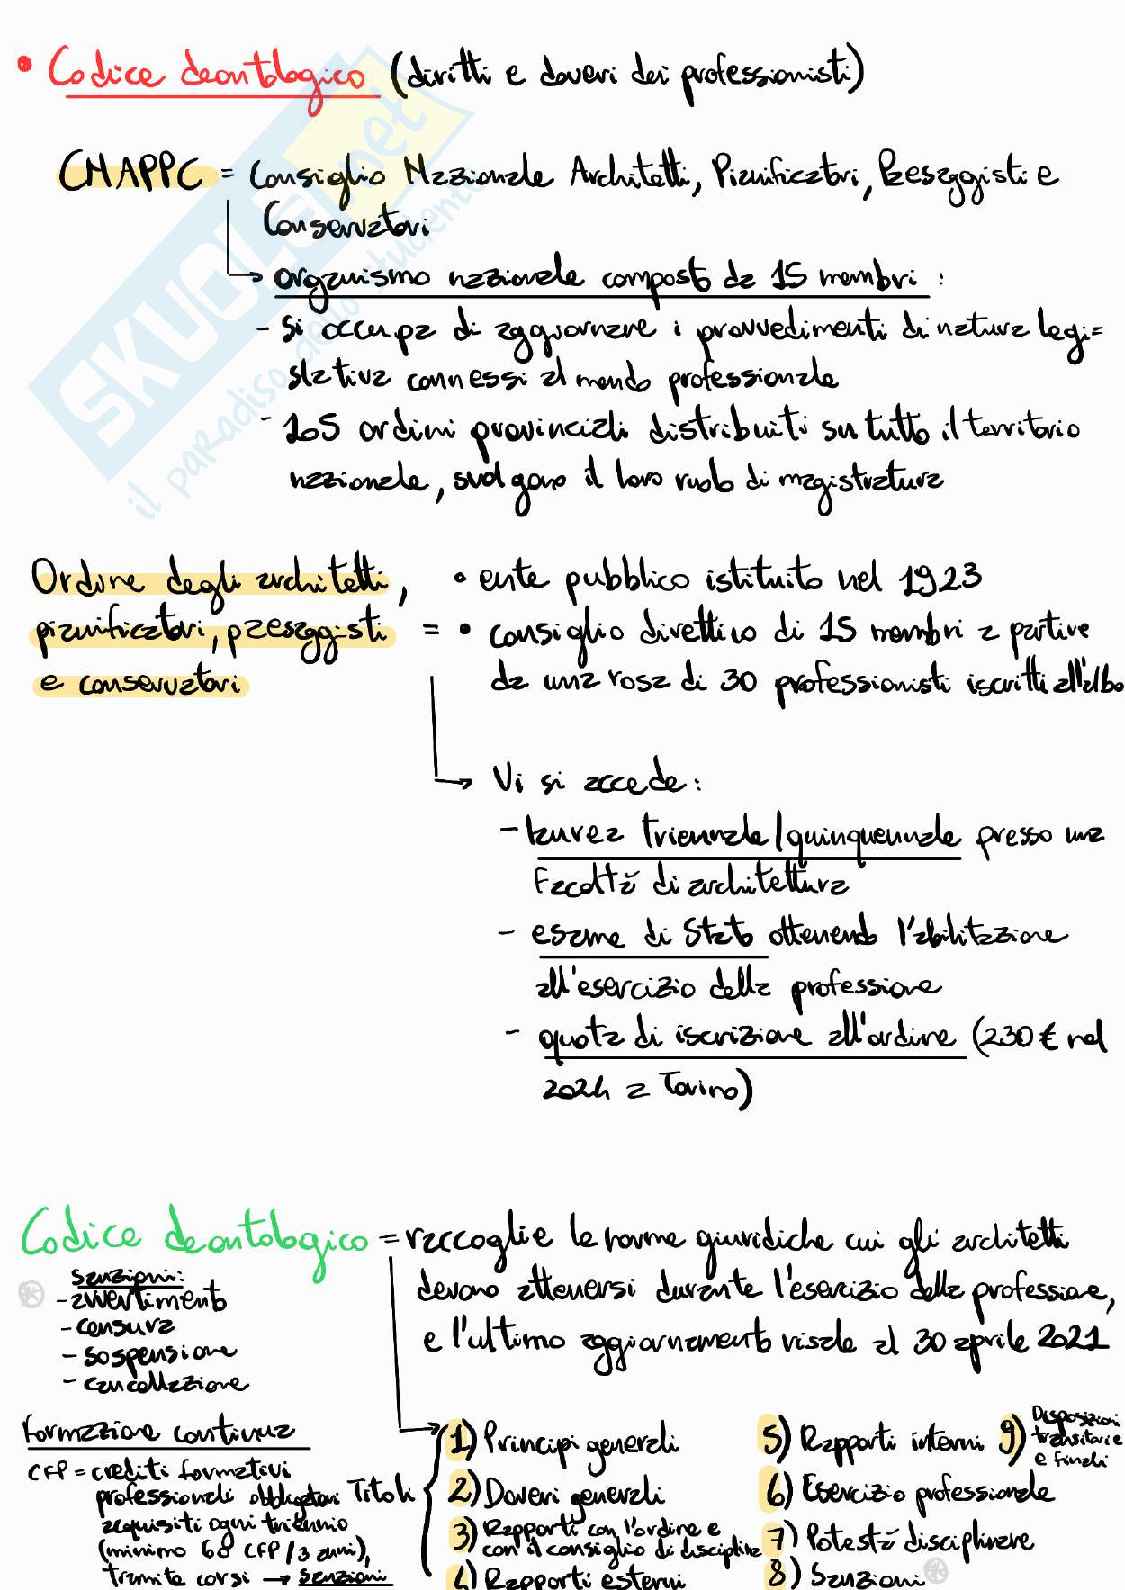 • Codice deontologico (diritti e doveri dei professionisti)
CNAPPC = Consiglio Nazionale Architetti, Pianificatori, Paesaggisti e
Conservatori
→ organismo nazionale composto da 15 membri :
- si occupa di aggiornare i provvedimenti di natura legi=
slativa connessi al mondo professionale
- 105 ordini provinciali distribuiti su tutto il territorio
nazionale, svolgono il loro ruolo di magistratura
SKUOLA.net
il paradiso dello studente
Ordine degli architetti,
pianificatori, paesaggisti =
e conservatori
• ente pubblico istituito nel 1923
• consiglio direttivo di 15 membri a partire
da una rosa di 30 professionisti iscritti all'albo
→ Vi si accede:
- laurea triennale/quinquennale presso una
Facoltà di architettura
- esame di Stato ottenendo l'abilitazione
all'esercizio della professione
- quota di iscrizione all'ordine (230 € nel
2024 a Torino)
Codice deontologico = raccoglie le norme giuridiche cui gli architetti
devono attenersi durante l'esercizio della professione,
e l'ultimo aggiornamento risale al 30 aprile 2021
* Sanzioni:
- avvertimento
- censura
- sospensione
- cancellazione
Formazione continua
CFP = crediti formativi
professionali obbligatori
acquisiti ogni triennio
(minimo 60 CFP / 3 anni),
tramite corsi → sanzioni
Titoli
1) Principi generali
2) Doveri generali
3) Rapporti con l'ordine e
con il consiglio di disciplina
4) Rapporti esterni
5) Rapporti interni
6) Esercizio professionale
7) Potestà disciplinare
8) Sanzioni *
9) Disposizioni
transitorie
e finali